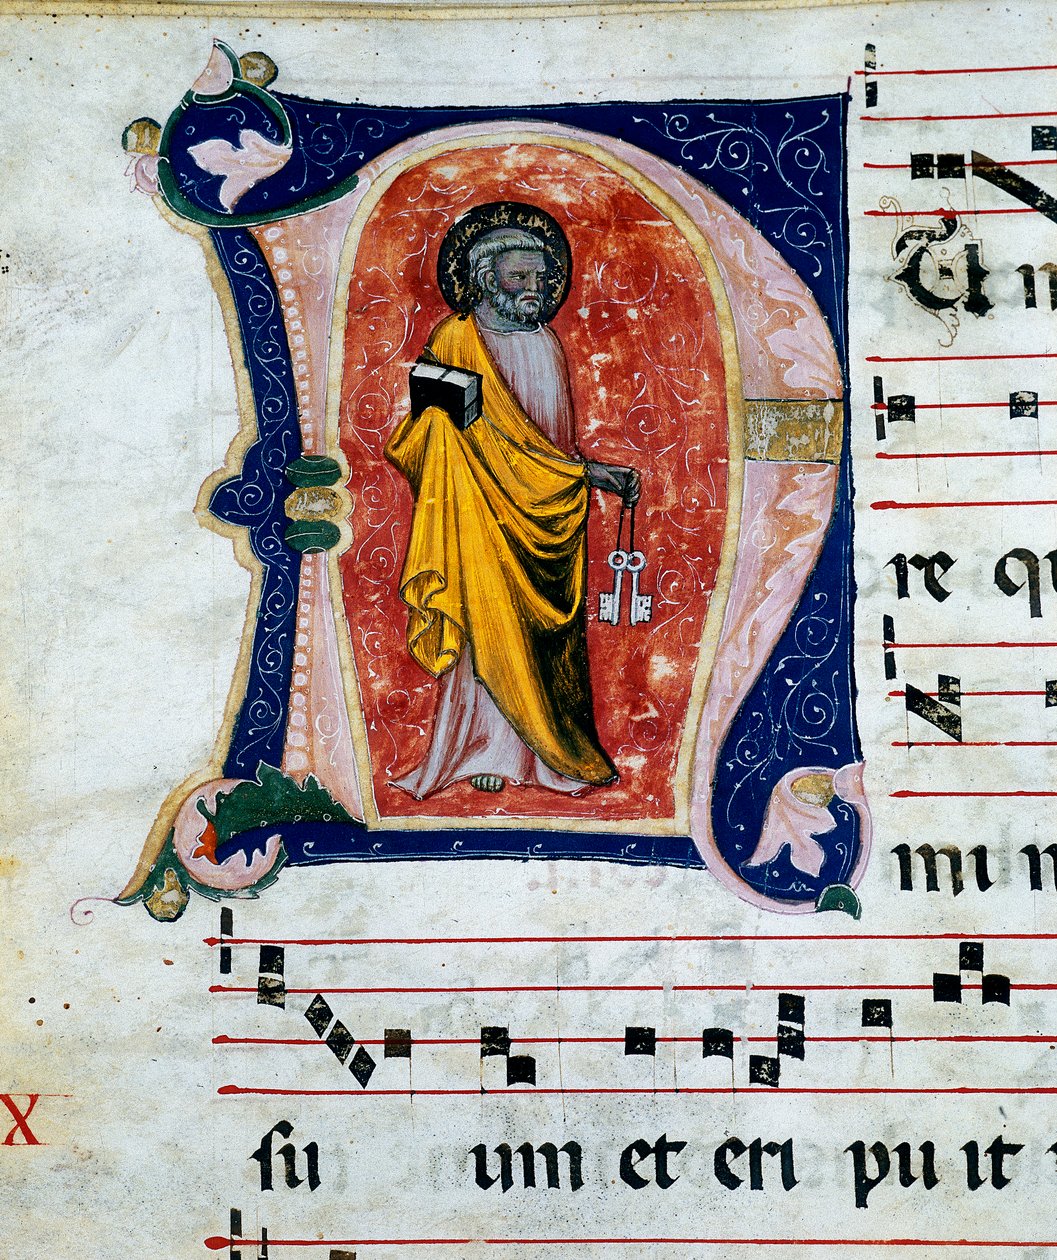 N Un
re qu
min
X
su um et eri pu it